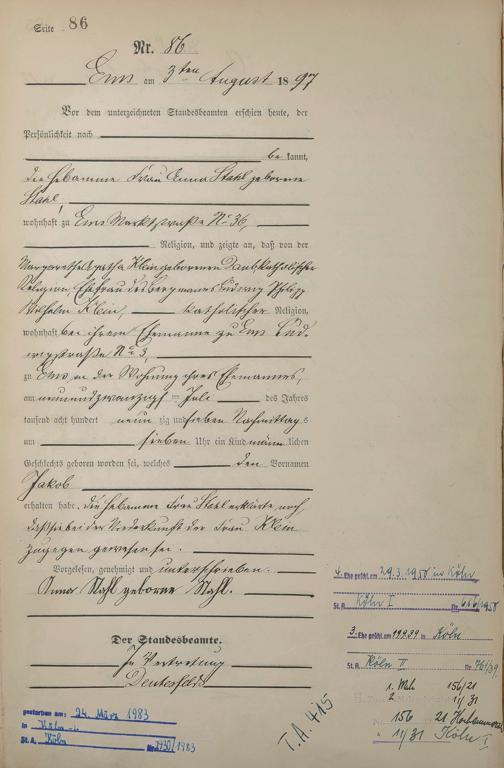 Seite 86
Nr. 86
Ems am 3ten August 1897
Vor dem unterzeichneten Standesbeamten erschien heute, der
Persönlichkeit nach
be kannt,
die Hebamme Frau Anna Stahl geborene
Stahl,
wohnhaft zu Ems Marktstraße No 36,
Religion, und zeigte an, daß von der
Margarethe Agatha Klein geborenen Daub katholischer
Religion, Ehefrau des Bergmannes Ludwig Philipp
Wilhelm Klein, katholischer Religion,
wohnhaft bei ihrem Ehemanne zu Ems Lud-
wigstraße No 3,
zu Ems, in der Wohnung ihres Ehemannes,
am neunundzwanzigsten Juli des Jahres
tausend acht hundert neun zig und sieben Nachmittags
um sieben Uhr ein Kind männlichen
Geschlechts geboren worden sei, welches den Vornamen
Jakob
erhalten habe. Die Hebamme Frau Stahl erklärte noch
daß sie bei der Niederkunft der Frau Klein
zugegen gewesen sei.
Vorgelesen, genehmigt und unterschrieben.
Anna Stahl geborne Stahl.
Der Standesbeamte.
In Vertretung
4. Ehe geschl. am 29.3.1958 in Köln
St. A. Köln I Nr. 1958
3. Ehe geschl. am 1939 in Köln
St. A. Köln II Nr. /39.
1. 156/21
2 11/31
156 21
11/31 Köln I
T.A. 415
gestorben am: 24. März 1983
in Köln
St. A. Köln Nr. 1930/1983